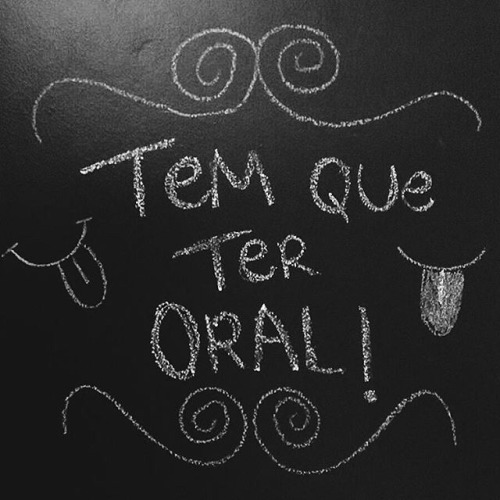 TeM QUe
TeR
ORAL!